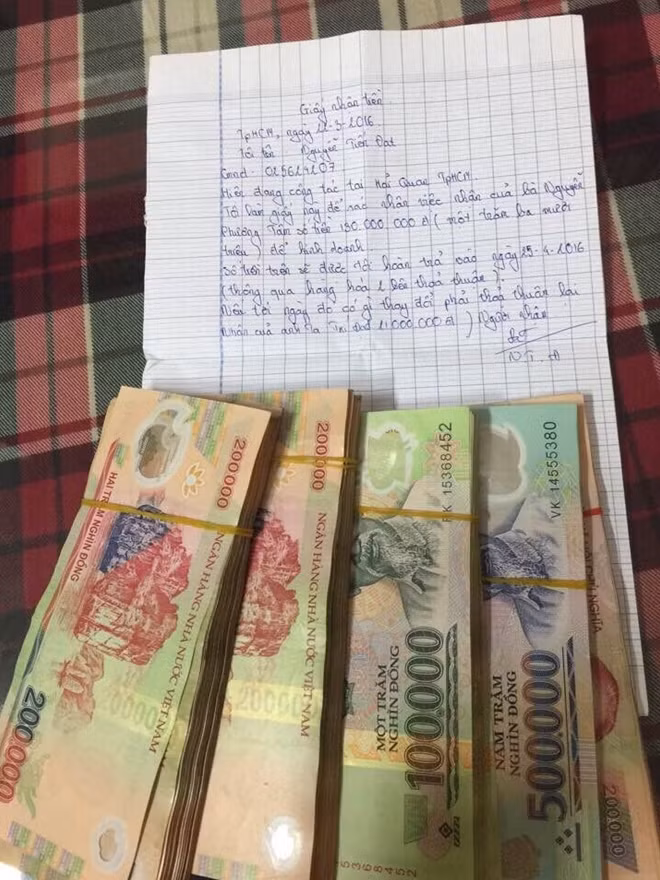 Giấy nhận tiền
TpHCM, ngày 22-3-2016
Tôi tên Nguyễn Tiến Đạt
Cmnd: 025624207
Hiện đang công tác tại Hải Quan TpHCM.
Tôi làm giấy này để xác nhận việc nhận của bà Nguyễn
Phương Tâm số tiền 130.000.000 đ (một trăm ba mươi
triệu) để kinh doanh
Số tiền trên sẽ được tôi hoàn trả vào ngày 25-4-2016
(thông qua hàng hoá 2 bên thoả thuận)
Nếu tới ngày đó có gì thay đổi phải thoả thuận lại
Nhận của anh Tri 1.000.000 đ) Người nhận
N.T.Đ
200000
HAI TRĂM NGHÌN ĐỒNG
NGÂN HÀNG NHÀ NƯỚC VIỆT NAM
200000
200000
200000
NGÂN HÀNG NHÀ NƯỚC VIỆT NAM
200000
PK 15368452
MỘT TRĂM
NGHÌN ĐỒNG
100000
5368452
VK 14555380
NĂM TRĂM
NGHÌN ĐỒNG
500000
NGHĨA
200000